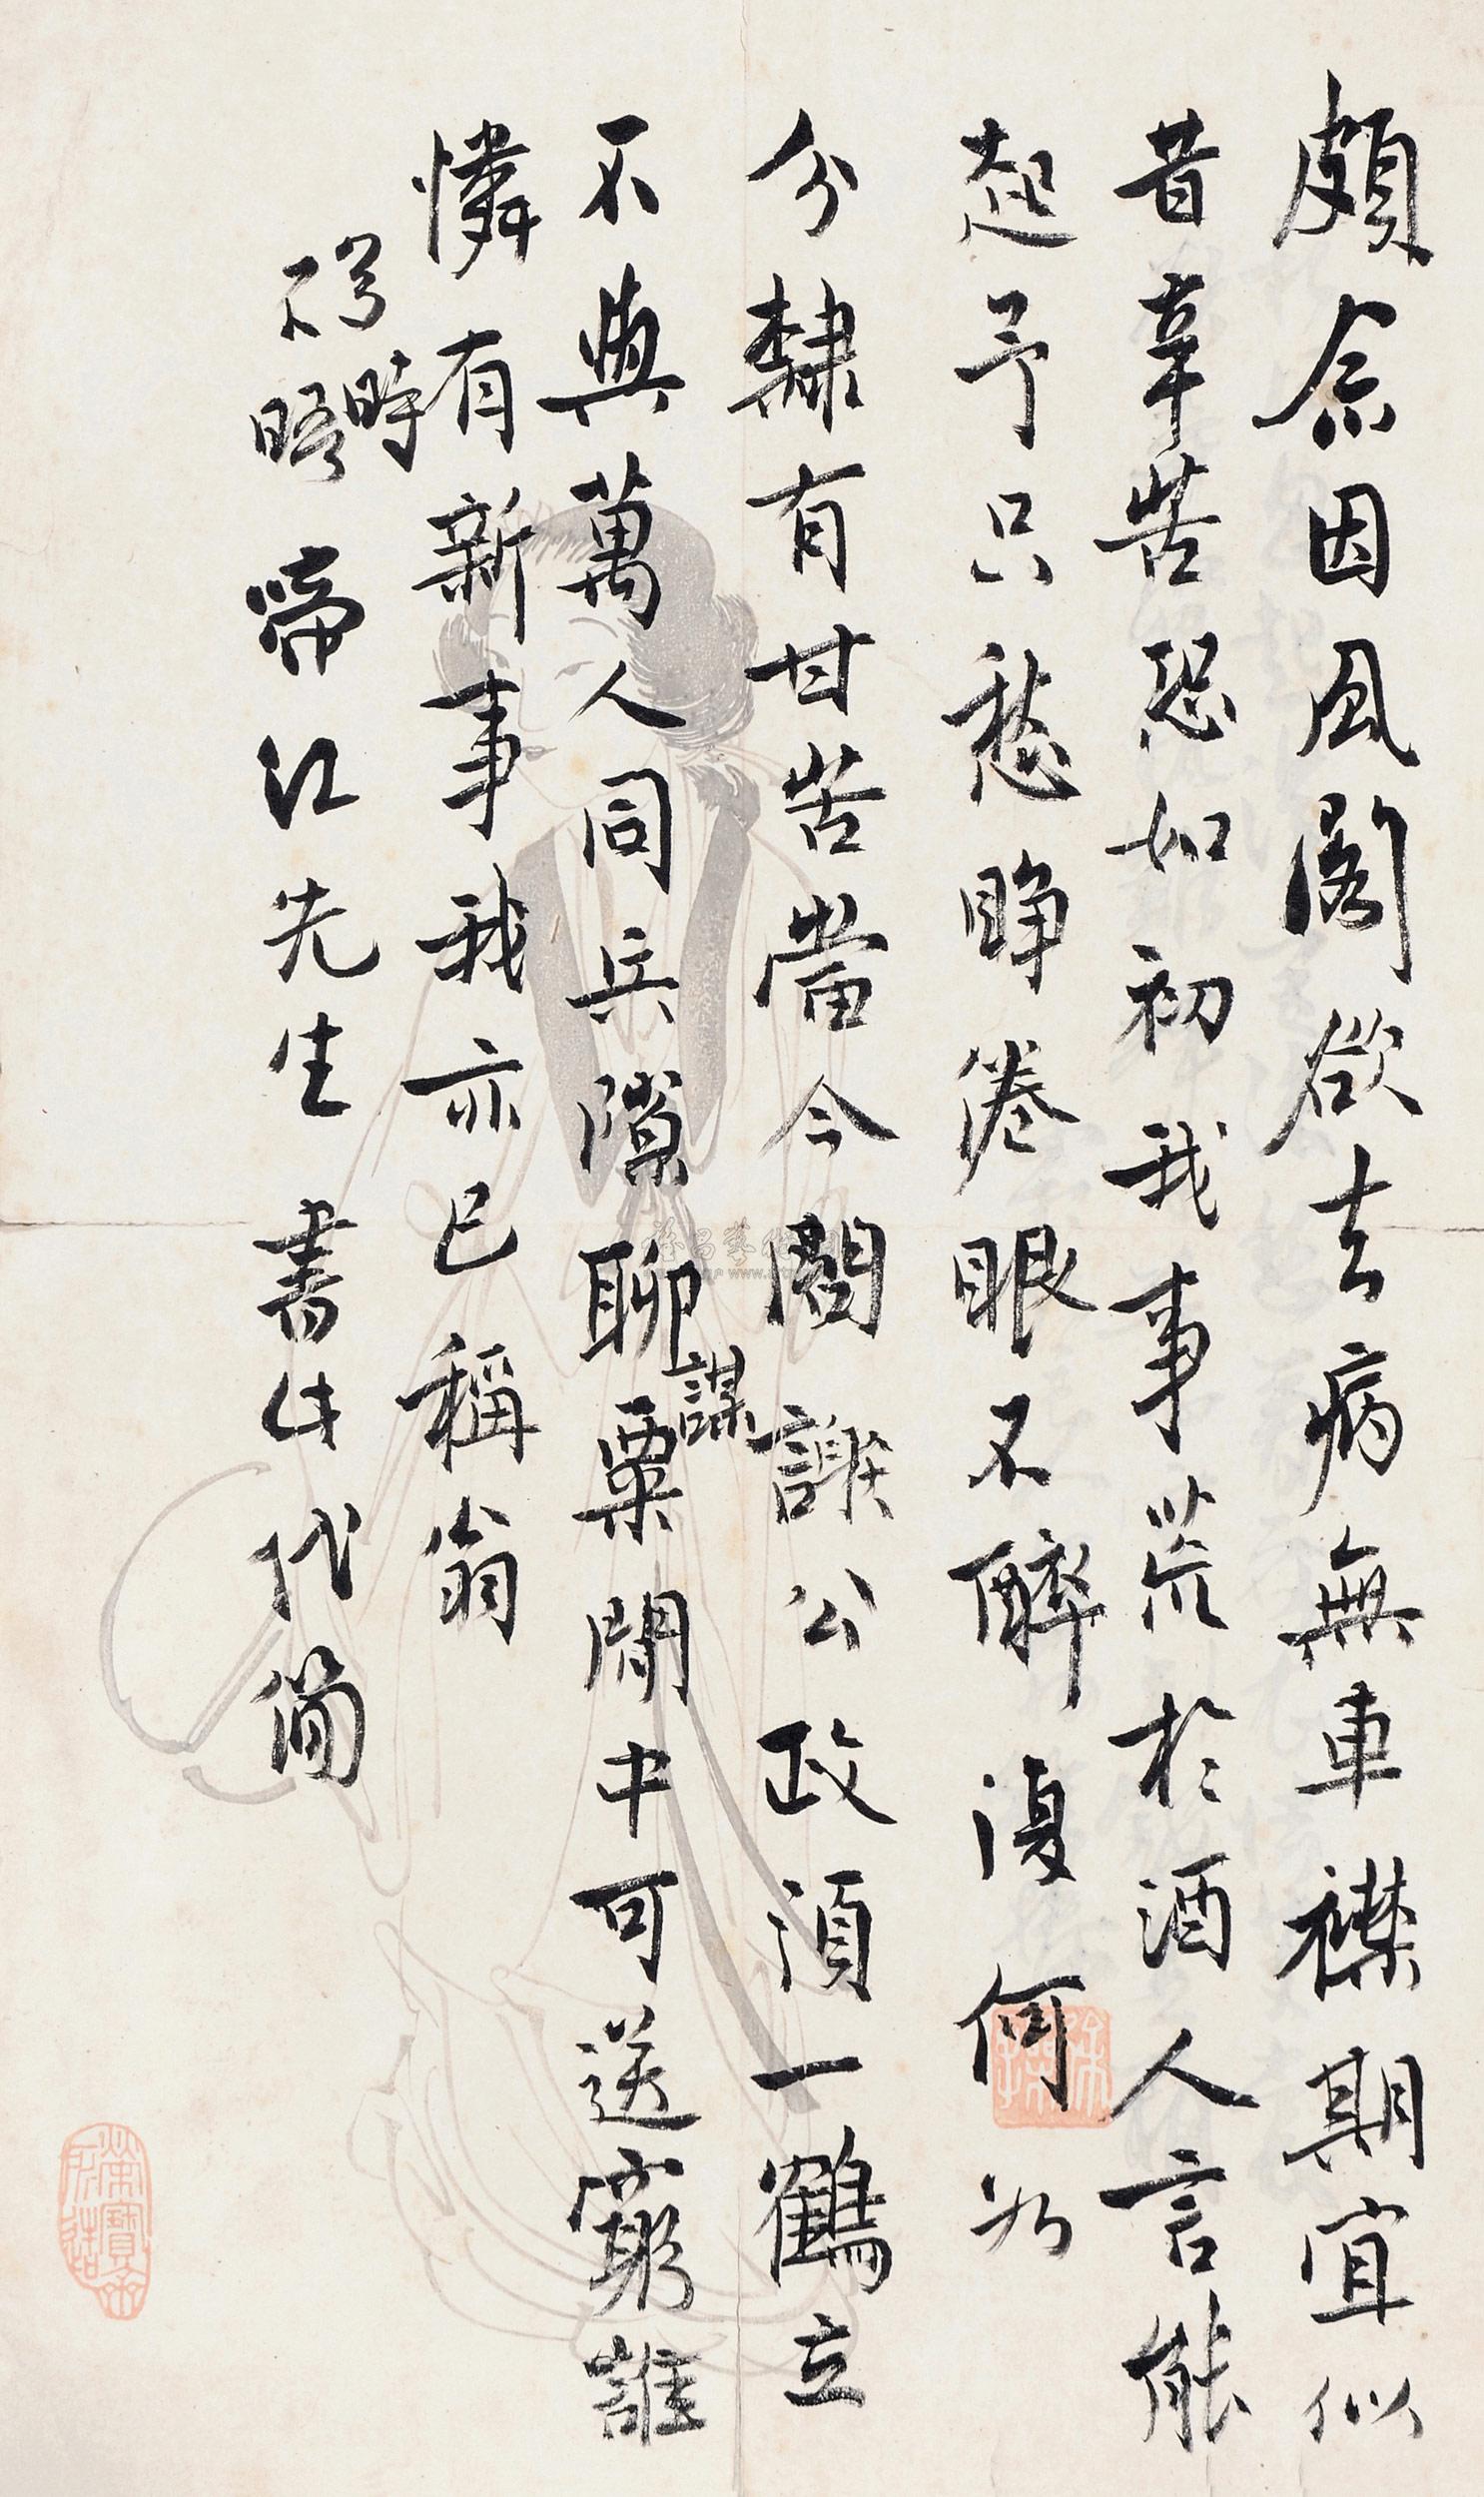 頗念因風閣欲去病無車襟期宜似
昔辛苦恐如初我事荒於酒人言能
起予只愁睁倦眼不醉復何如
分隸有甘苦當今關謝公政須一鶴立
不與萬人同兵隙聊謀粟閒中可送窮誰
憐有新事我亦已稱翁
不得時晤啼江先生書此代简
榮寶齋